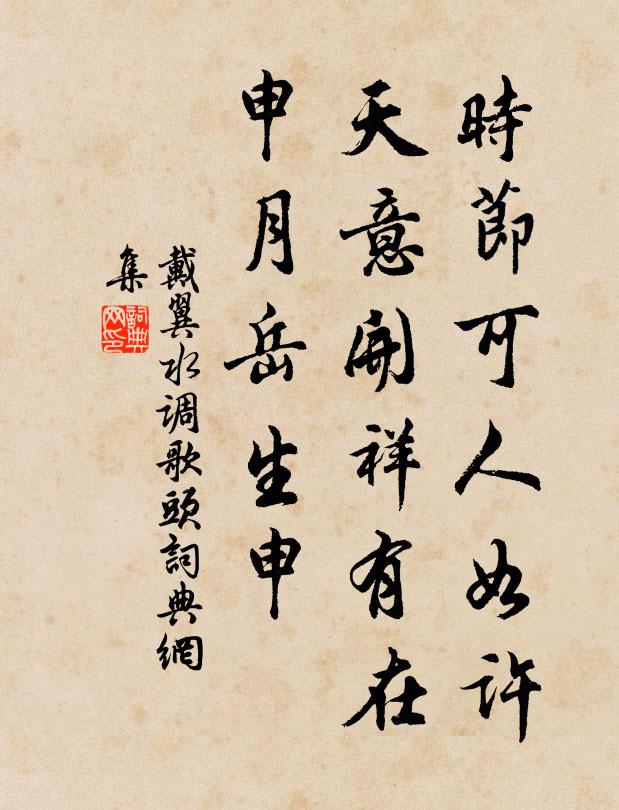 時節可人如許
天意開祥有在
申月岳生申
戴翼水调歌頭詞典網
集
詞典网印